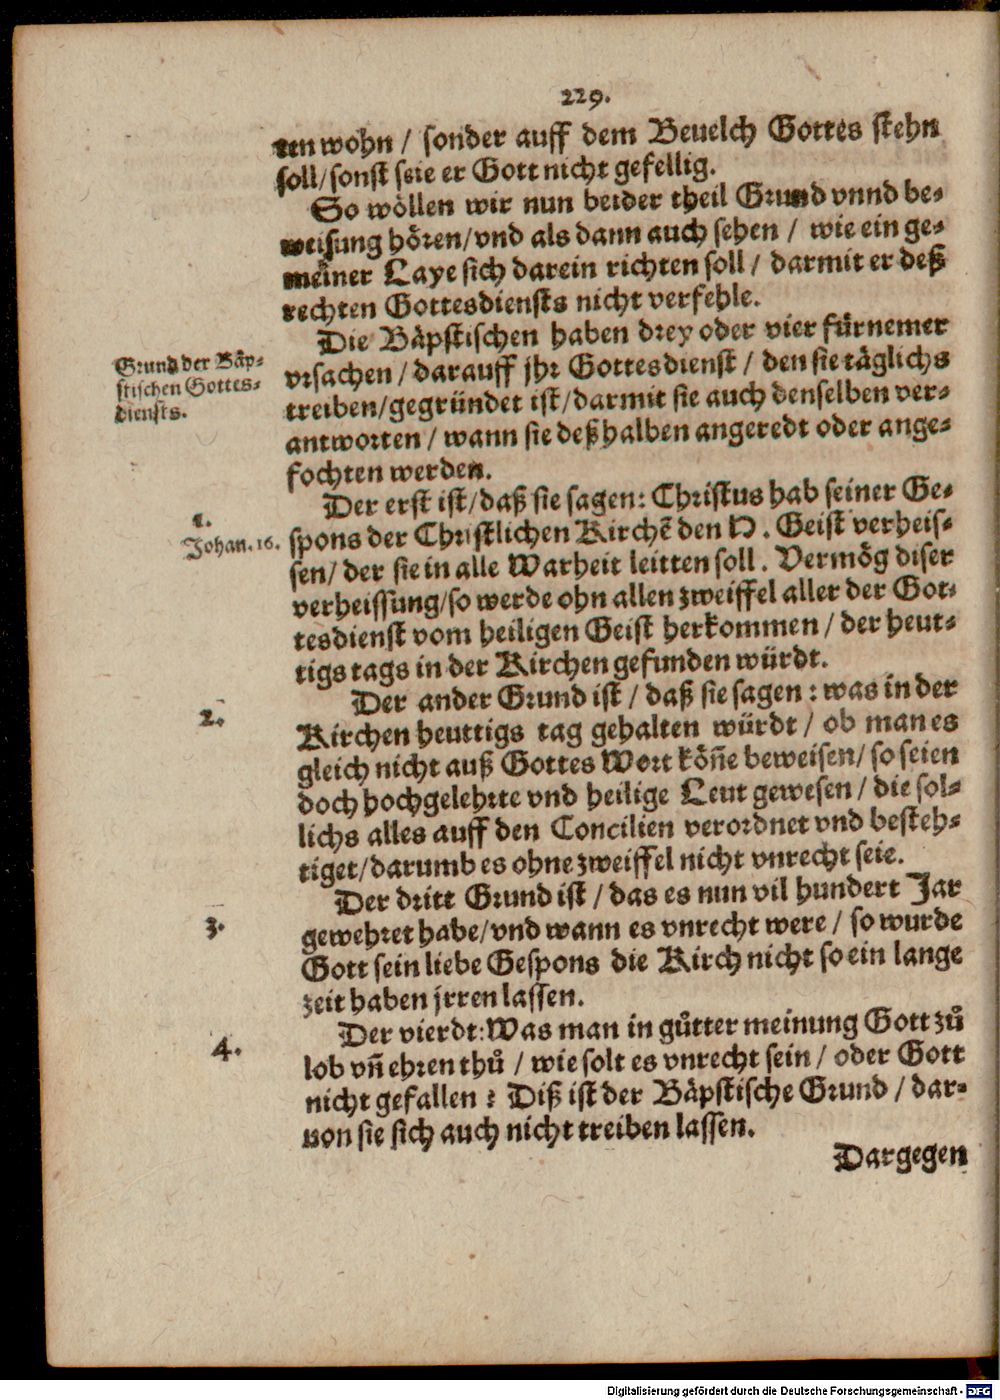 229.
ten wohn / sonder auff dem Beuelch Gottes stehn
soll/sonst seie er Gott nicht gefellig.
So wöllen wir nun beider theil Grund vnnd be-
weisung hören/vnd als dann auch sehen / wie ein ge-
meiner Laye sich darein richten soll / darmit er deß
rechten Gottesdiensts nicht verfehle.
Grund der Bäp-
stischen Gottes-
diensts.
Die Bäpstischen haben drey oder vier fürnemer
vrsachen / darauff jhr Gottesdienst / den sie täglichs
treiben/gegründet ist/darmit sie auch denselben ver-
antworten / wann sie deßhalben angeredt oder ange-
fochten werden.
1.
Johan.16.
Der erst ist/daß sie sagen: Christus hab seiner Ge-
spons der Christlichen Kirchē den H. Geist verheis-
sen/ der sie in alle Warheit leitten soll. Vermög diser
verheissung/so werde ohn allen zweiffel aller der Got-
tesdienst vom heiligen Geist herkommen / der heut-
tigs tags in der Kirchen gefunden würdt.
2.
Der ander Grund ist / daß sie sagen: was in der
Kirchen heuttigs tag gehalten würdt / ob man es
gleich nicht auß Gottes Wort köñe beweisen/ so seien
doch hochgelehrte vnd heilige Leut gewesen / die sol-
lichs alles auff den Concilien verordnet vnd besteh-
tiget/darumb es ohne zweiffel nicht vnrecht seie.
3.
Der dritt Grund ist / das es nun vil hundert Jar
gewehret habe/vnd wann es vnrecht were / so wurde
Gott sein liebe Gespons die Kirch nicht so ein lange
zeit haben jrren lassen.
4.
Der vierdt: Was man in gůtter meinung Gott zů
lob vñ ehren thů / wie solt es vnrecht sein / oder Gott
nicht gefallen? Diß ist der Bäpstische Grund / dar-
uon sie sich auch nicht treiben lassen.
Dargegen
Digitalisierung gefördert durch die Deutsche Forschungsgemeinschaft - DFG